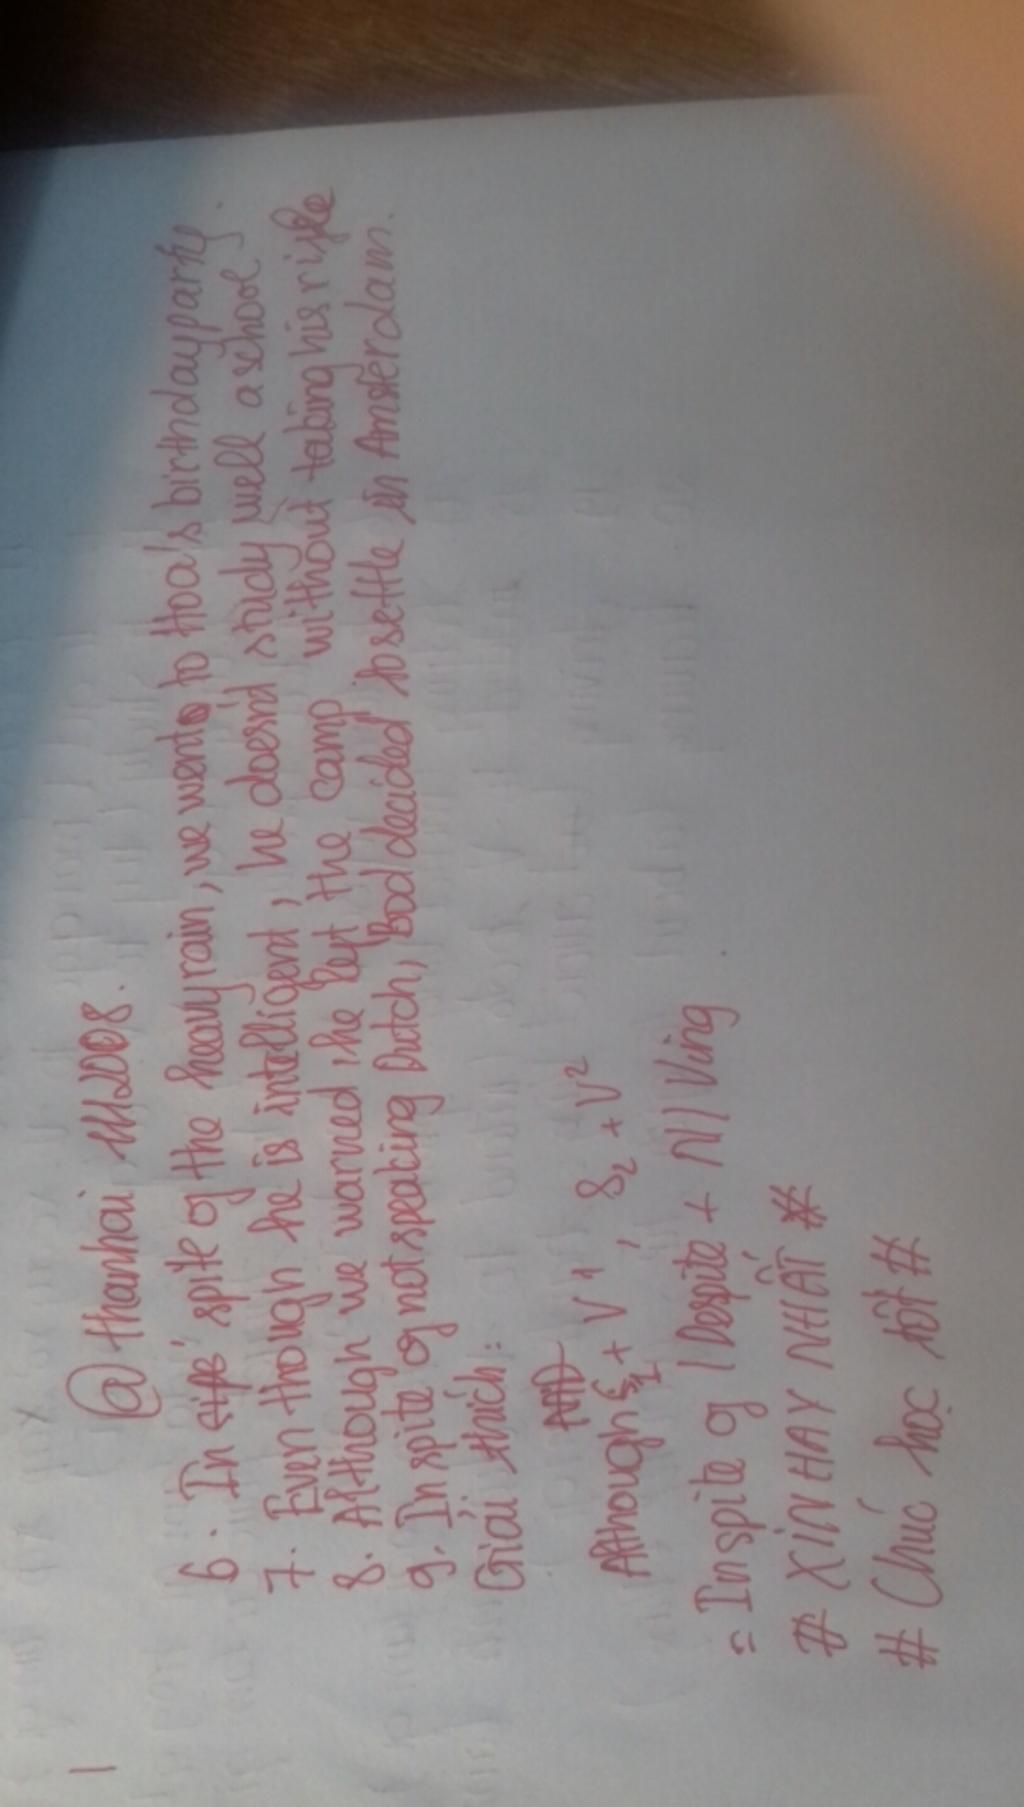 @ thanhai 1112008.
6. In spite of the heavy rain, we went to Hoa's birthday party.
7. Even though he is intelligent, he doesn't study well a school.
8. Although we warned, he left the camp without taking his rifle
9. In spite of not speaking Dutch, Bod decided to settle in Amsterdam.
Giải thích:
Although S1 + V1, S2 + V2
= Inspite of / Despite + N / Ving
# XIN HAY NHẤT #
# Chúc học tốt #